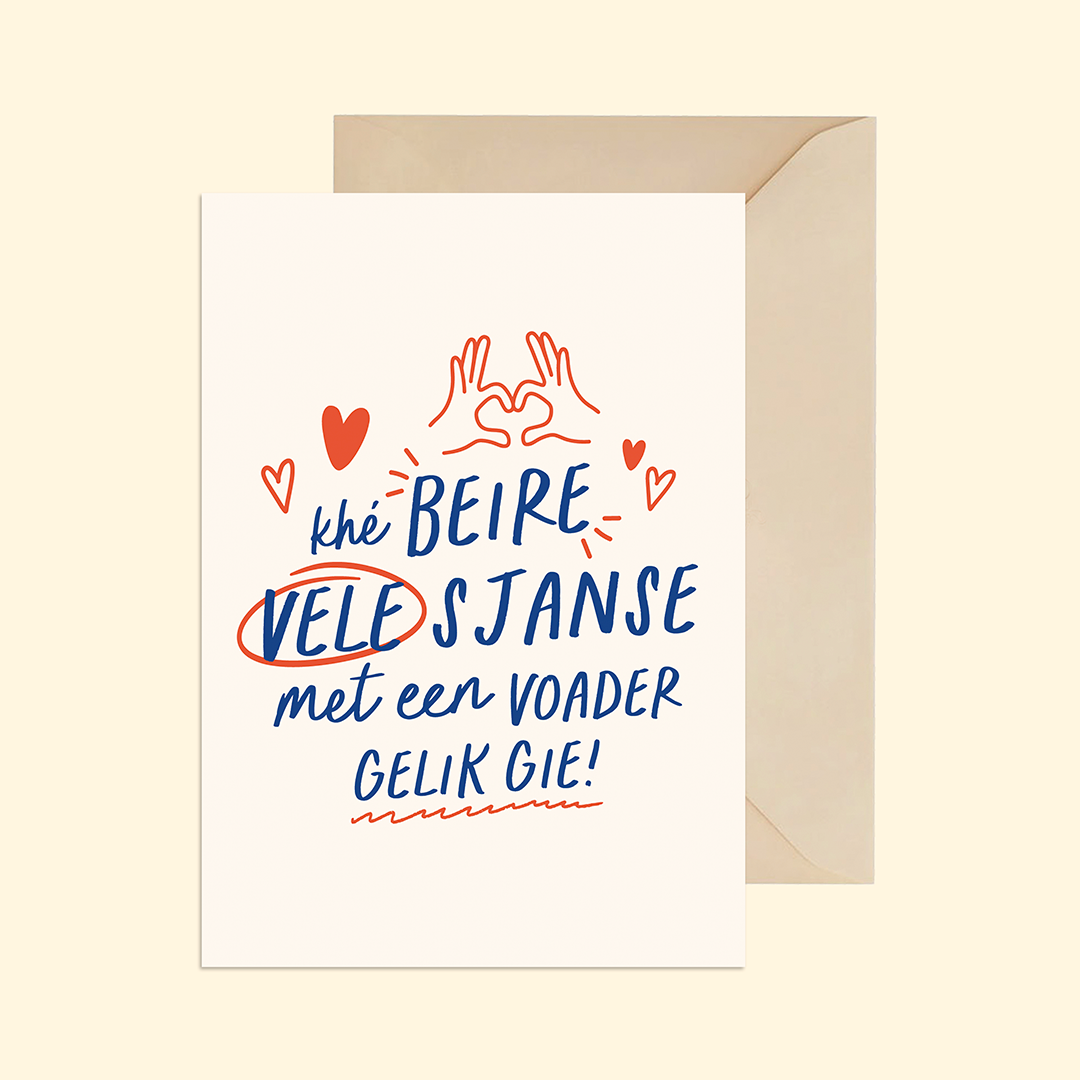 khé BEIRE
VELE SJANSE
met een VOADER
GELIK GIE!